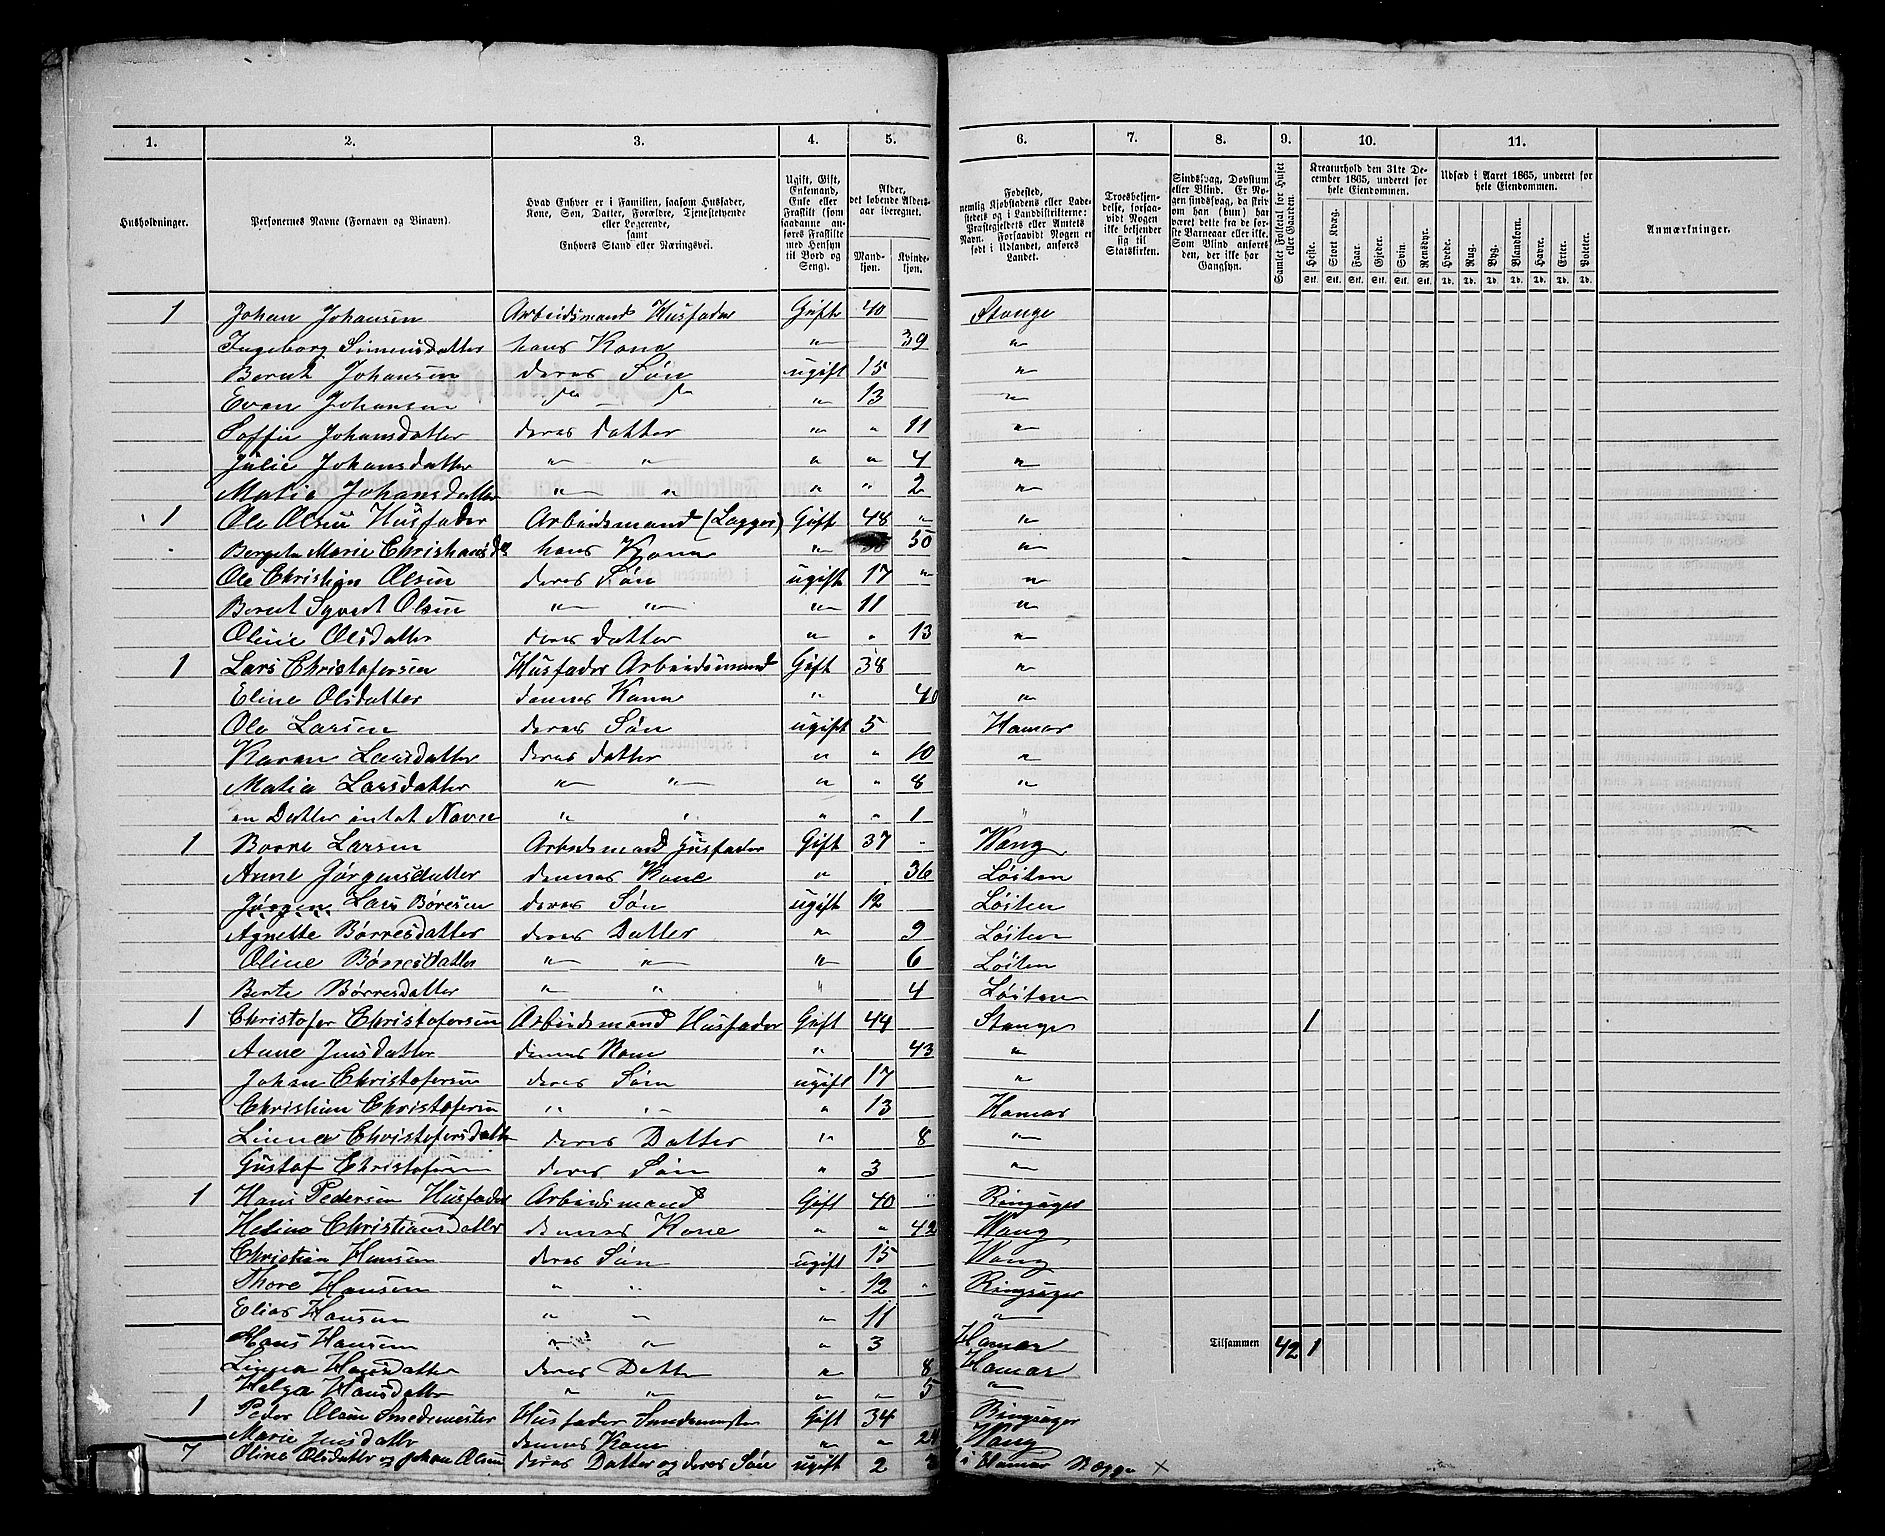 1. 2. 3. 4. 5. 6. 7. 8. 9. 10. 11.
Husholdninger.
Personernes Navne (Fornavn og Vinavn).
Hvad Enhver er i Familien, saasom Husfader, Kone, Søn, Datter, Forældre, Tjenestetyende eller Logerende, samt Enhvers Stand eller Næringsvei.
Ugift, Gift, Enkemand, Enke eller Fraskilt (som saadanne anføres Fraskilte med Hensyn til Bord og Seng).
Alder, det løbende Aldersaar iberegnet.
Mandkjøn. Kvindekjøn.
Fødested, nemlig Kjøbstadens eller Ladestedets og i Landdistrikterne: Præstegjeldets eller Amtets Navn. Forsaavidt Nogen er født i Udlandet, anføres Landet.
Troesbekjendelse, forsaavidt Nogen ikke bekjender sig til Statskirken.
Sindssvag, Døvstum eller Blind. Er Nogen sindssvag, da skrives om han (hun) har været dette fra de første Barneaar eller ikke. Som Blind anføres den, der ikke har Gangsyn.
Samlet Folketal for Huset eller Gaarden.
Kreaturhold den 31te December 1865, underet for hele Eiendommen.
Heste. Stort Kvæg. Faar. Gjeder. Svin. Rensdyr.
Stk. Stk. Stk. Stk. Stk. Stk.
Udsæd i Aaret 1865, underet for hele Eiendommen.
Hvede. Rug. Byg. Blandkorn. Havre. Erter. Poteter.
Td. Td. Td. Td. Td. Td. Td.
Anmærkninger.
1 Johan Johansen Arbeidsmand Husfader Gift 40 Stange
Ingeborg Simensdatter hans Kone " 39 "
Bernt Johansen deres Søn ugift 15 "
Even Johansen " 13 "
Soffie Johansdatter deres datter " " 11 "
Julie Johansdatter " " " " 4 "
Matia Johansdatter " " " " 2 "
1 Ole Olsen Husfader Arbeidsmand (Logger) Gift 48 " "
Marie hans Kone " 50 "
Ole Christian Olsen deres Søn ugift 17 " "
Bernt Syvert Olsen " " " 11 "
Oline Olsdatter deres datter " " 13 "
1 Lars Christofersen Husfader Arbeidsmand Gift 38 "
Eline Olsdatter dennes Kone " 40 "
Ole Larsen deres Søn ugift 5 Hamar
Karen Larsdatter deres datter " " 10 "
Matia Larsdatter " " " " 8 "
en Datter intet Navn " " " " 1 "
1 Borre Larsen Arbeidsmand Husfader Gift 37 " Wang
Anne Jørgensdatter dennes Kone " 36 Løiten
Jørgen Lars Børesen deres Søn ugift 12 Løiten
Agnette Børresdatter deres Datter " 9 Løiten
Oline Børresdatter " " " 6 Løiten
Berte Børresdatter " " " 4 Løiten
1 Christofer Christofersen Arbeidsmand Husfader Gift 44 Stange 1
Anne Jensdatter dennes Kone " 43 "
Johan Christofersen deres Søn ugift 17 "
Christian Christofersen " " " 13 Hamar
Linna Christofersdatter deres Datter " 8 "
Gustof Christofersen deres Søn " 3 "
1 Hans Pedersen Husfader Arbeidsmand Gift 40 " Ringsager
Helina Christiansdatter dennes Kone " " 42 Wang
Christian Hansen deres Søn ugift 15 Wang
Thore Hansen " " " 12 " Ringsager
Elias Hansen " " " 11 "
Hans Hansen " " 3 Hamar Tilsammen 42 1
Linna Hansdatter deres Datter " 8 Hamar
Helga Hansdatter " " " " 5 "
1 Peder Olsen Smedemester Husfader Smedemester Gift 34 Ringsager
Marie Jensdatter dennes Kone " " Wang
7 Oline Olsdatter og Johan Olsen deres Datter og deres Søn ugift 2 i Hamar Begge ×